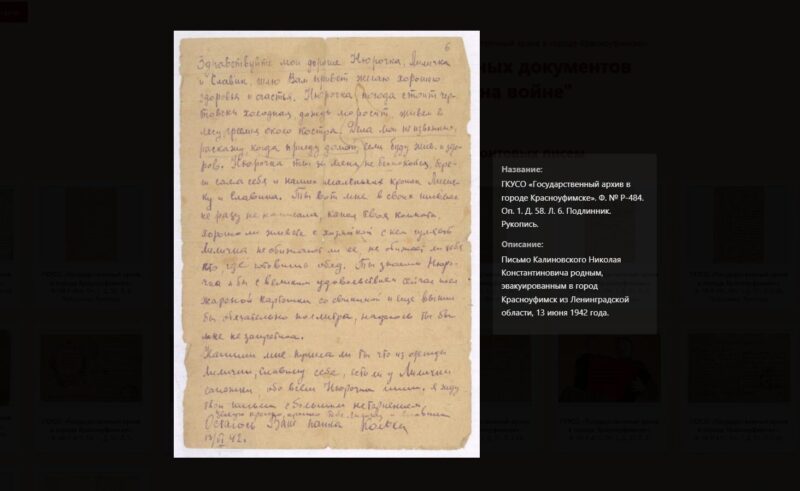 6
Здравствуйте мои дорогие Нюрочка, Лилечка
и Славик, шлю Вам привет желаю хорошего
здоровья и счастья. Нюрочка погода стоит чер-
товски холодная, дождь моросит, живем в
лесу греемся около костра. Дела мои
раскажу, когда приеду домой, если буду жив. здо-
ров. Нюрочка ты за меня не беспокойся, бере-
ги сама себя и наших маленьких крошек Лилеч-
ку и Славика. Ты вот мне в своих письмах
не разу не написала, какая твоя комната,
хорошо ли живете с хозяйкой с кем гуляет
Лиличка не обижают ли её, не обижает ли тебя
кто, где готовишь обед. Ты знаешь Нюро-
чка я бы с великим удовольствием сейчас поел
жареной картошки со свининой и еще выпил
бы обязательно пол литра, надеюсь ты бы
мне не запретила.
Напиши мне ли ты что из одежды
Лиличке, Славику себе, есть ли у Лилички
сапожки, обо всем Нюрочка пиши, я жду
твои письма с большим нетерпением
крепко, крепко тебя и Славика
Остаюсь Ваш папка Колька
13/VI 42 г.
Название:
ГКУСО «Государственный архив в
городе Красноуфимске». Ф. № Р-484.
Оп. 1. Д. 58. Л. 6. Подлинник.
Рукопись.
Описание:
Письмо Калиновского Николая
Константиновича родным,
эвакуированным в город
Красноуфимск из Ленинградской
области, 13 июня 1942 года.
ных документов
на войне"
онтовых писем